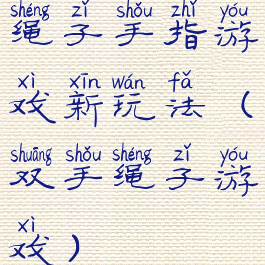 shéng zǐ shǒu zhǐ yóu
绳子手指游
xì xīn wán fǎ
戏新玩法（
shuāng shǒu shéng zǐ yóu
双手绳子游
xì
戏）